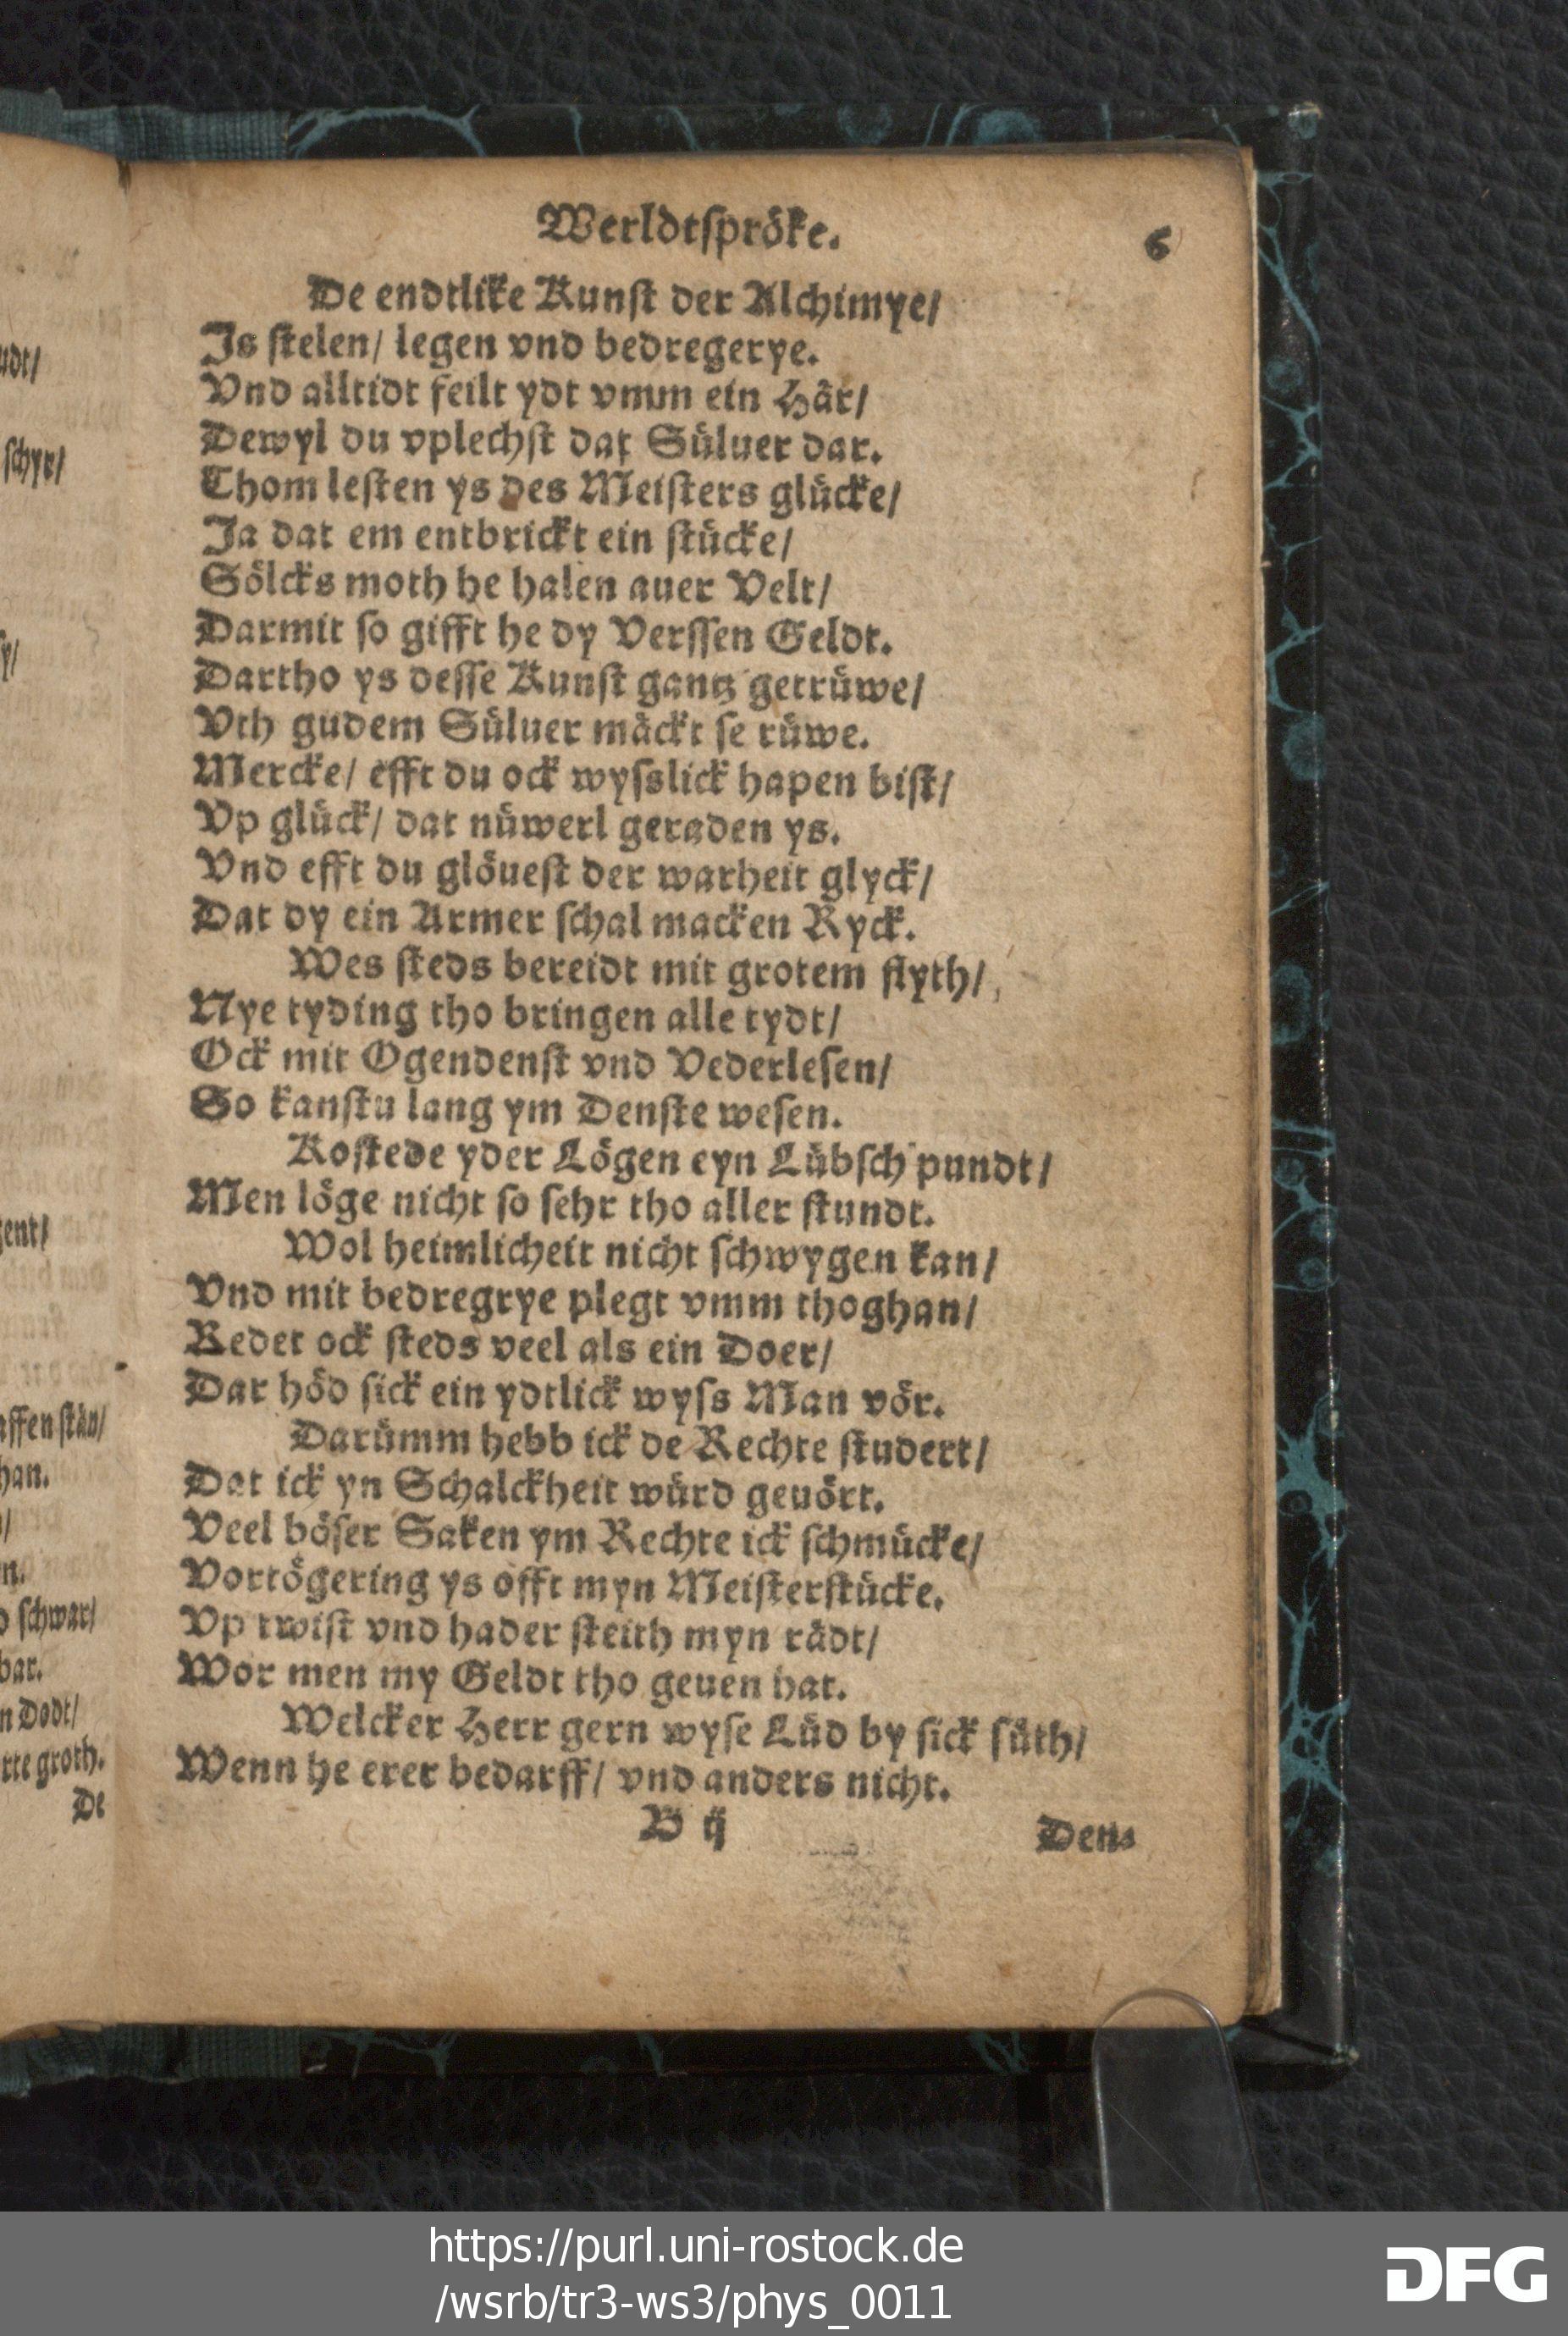 udt/
schyr/
y/
gent/
affen stän/
han.
n.
schwar/
bar.
n Dodt/
rte groth.
De
Werldtspröke.
6
De endtlike Kunst der Alchimye/
Js stelen/ legen vnd bedregerye.
Vnd alltidt feilt ydt vmm ein Här/
Dewyl du vplechst dat Süluer dar.
Thom lesten ys des Meisters glücke/
Ja dat em entbrickt ein stücke/
Sölcks moth he halen auer Velt/
Darmit so gifft he dy Verssen Geldt.
Dartho ys desse Kunst gantz getrüwe/
Vth gudem Süluer mäckt se rüwe.
Mercke/ efft du ock wysslick hapen bist/
Vp glück/ dat nüwerl geraden ys.
Vnd efft du glöuest der warheit glyck/
Dat dy ein Armer schal macken Ryck.
Wes steds bereidt mit grotem flyth/
Nye tyding tho bringen alle tydt/
Ock mit Ogendenst vnd Vederlesen/
So kanstu lang ym Denste wesen.
Kostede yder Lögen eyn Lübsch pundt/
Men löge nicht so sehr tho aller stundt.
Wol heimlicheit nicht schwygen kan/
Vnd mit bedregrye plegt vmm thoghan/
Redet ock steds veel als ein Doer/
Dar höd sick ein ydtlick wyss Man vör.
Darümm hebb ick de Rechte studert/
Dat ick yn Schalckheit würd geuört.
Veel böser Saken ym Rechte ick schmücke/
Vortögering ys offt myn Meisterstücke.
Vp twist vnd hader steith myn rädt/
Wor men my Geldt tho geuen hat.
Welcker Herr gern wyse Lüd by sick süth/
Wenn he erer bedarff/ vnd anders nicht.
B ij
Den-
https://purl.uni-rostock.de
/wsrb/tr3-ws3/phys_0011
DFG